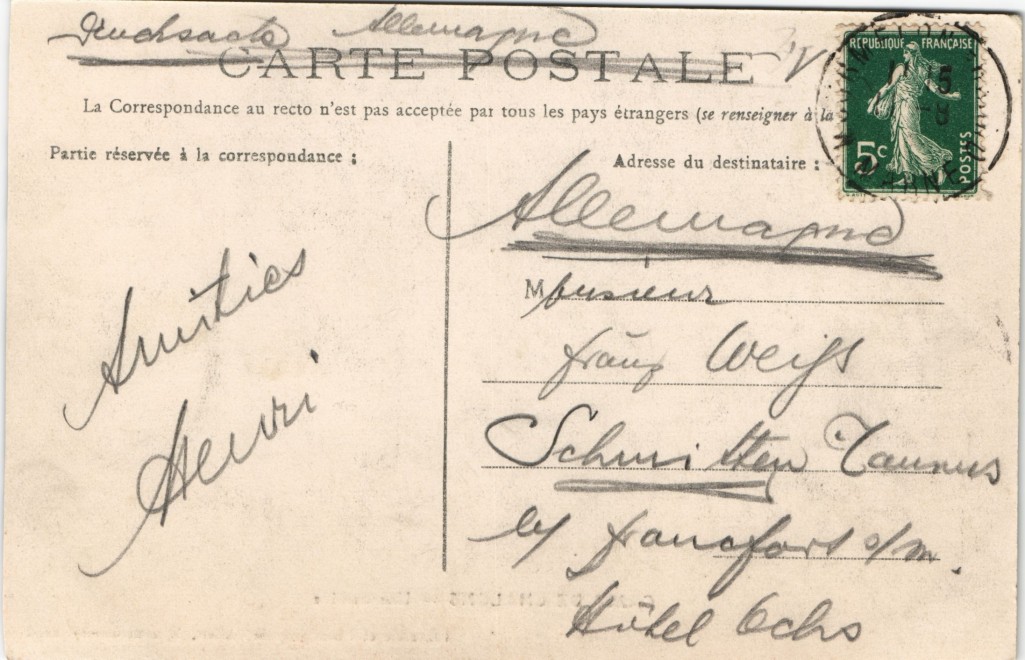 Drucksache Allemagne
CARTE POSTALE
La Correspondance au recto n'est pas acceptée par tous les pays étrangers (se renseigner à la
Partie réservée à la correspondance :
Adresse du destinataire :
RÉPUBLIQUE FRANÇAISE
5c
POSTES
Allemagne
Monsieur
franz Weiss
Schmitten Taunus
b/ francfort s/m.
Hôtel Ochs
Amitiés
Henri